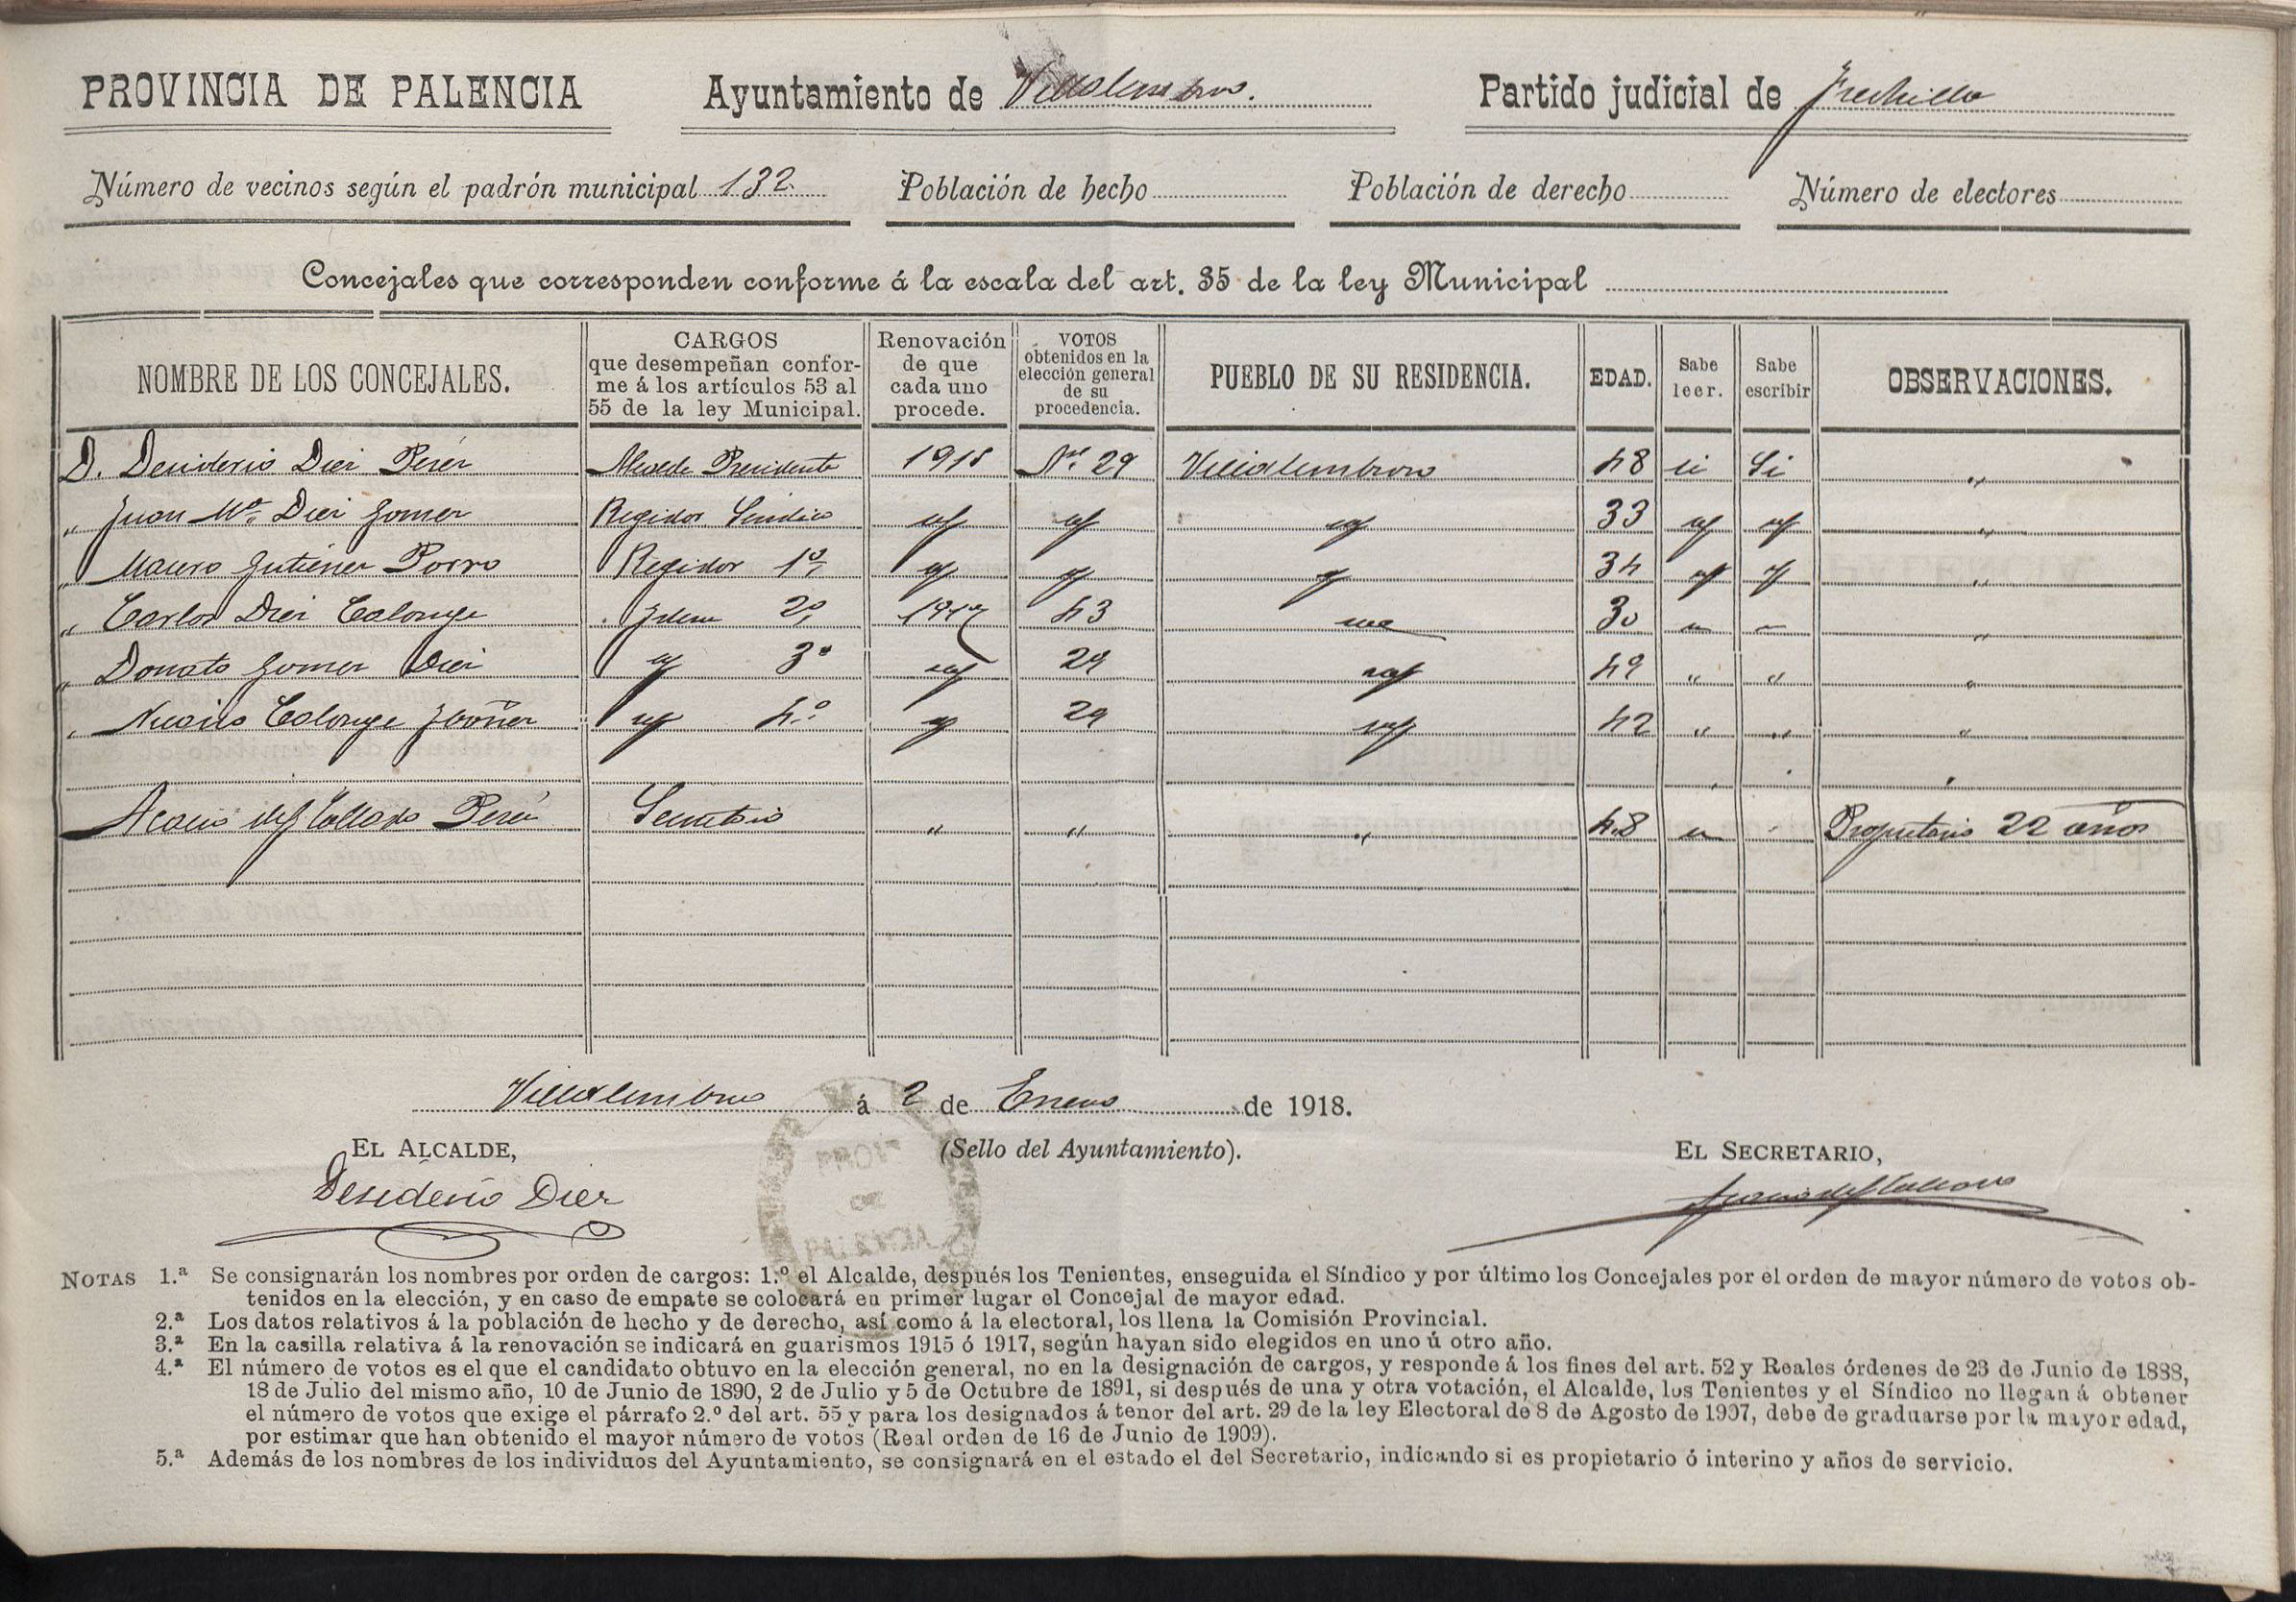 PROVINCIA DE PALENCIA Ayuntamiento de Villalumbroso. Partido judicial de Frechilla
Número de vecinos según el padrón municipal 132. Población de hecho Población de derecho Número de electores
Concejales que corresponden conforme á la escala del art. 35 de la ley Municipal
NOMBRE DE LOS CONCEJALES. CARGOS que desempeñan conforme á los artículos 53 al 55 de la ley Municipal. Renovación de que cada uno procede. VOTOS obtenidos en la elección general de su procedencia. PUEBLO DE SU RESIDENCIA. EDAD. Sabe leer. Sabe escribir OBSERVACIONES.
D. Desiderio Diez Perez Alcalde Presidente 1915 29 48 si Si "
" Juan Mª. Diez Gomez Regidor Sindico 33 "
" Mauro Gutierrez Porro Regidor 1º 34 "
" Carlos Diez Calonge Idem 2º 1917 43 30 "
" Donato Gomez Diez 3º 29 49 " " "
" Calonge Ibañez 4.º 29 42 " " "
Acacio del Collado Perez Secretario " " " 48 Propietario 22 años
á 2 de Enero de 1918.
EL ALCALDE, (Sello del Ayuntamiento). EL SECRETARIO,
Desiderio Diez
PROVª
DE
PALENCIA
NOTAS 1.ª Se consignarán los nombres por orden de cargos: 1.º el Alcalde, después los Tenientes, enseguida el Síndico y por último los Concejales por el orden de mayor número de votos ob-
tenidos en la elección, y en caso de empate se colocará en primer lugar el Concejal de mayor edad.
2.ª Los datos relativos á la población de hecho y de derecho, así como á la electoral, los llena la Comisión Provincial.
3.ª En la casilla relativa á la renovación se indicará en guarismos 1915 ó 1917, según hayan sido elegidos en uno ú otro año.
4.ª El número de votos es el que el candidato obtuvo en la elección general, no en la designación de cargos, y responde á los fines del art. 52 y Reales órdenes de 23 de Junio de 1888,
18 de Julio del mismo año, 10 de Junio de 1890, 2 de Julio y 5 de Octubre de 1891, si después de una y otra votación, el Alcalde, los Tenientes y el Síndico no llegan á obtener
el número de votos que exige el párrafo 2.º del art. 55 y para los designados á tenor del art. 29 de la ley Electoral de 8 de Agosto de 1907, debe de graduarse por la mayor edad,
por estimar que han obtenido el mayor número de votos (Real orden de 16 de Junio de 1909).
5.ª Además de los nombres de los individuos del Ayuntamiento, se consignará en el estado el del Secretario, indicando si es propietario ó interino y años de servicio.